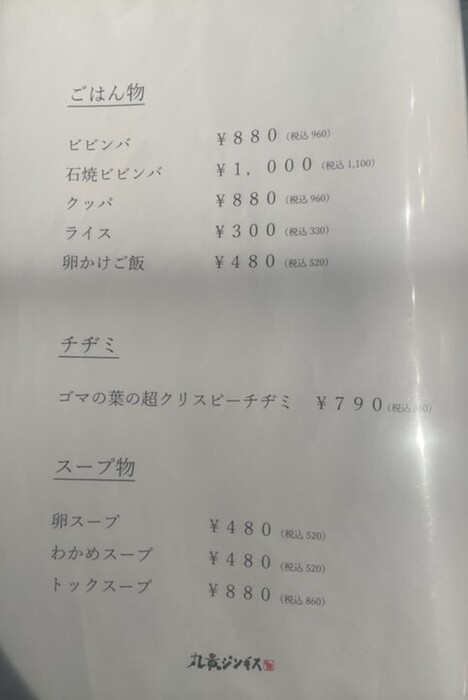 ごはん物
ビビンバ ￥８８０（税込 960）
石焼ビビンバ ￥１，０００（税込 1,100）
クッパ ￥８８０（税込 960）
ライス ￥３００（税込 330）
卵かけご飯 ￥４８０（税込 520）
チヂミ
ゴマの葉の超クリスピーチヂミ ￥７９０（税込
スープ物
卵スープ ￥４８０（税込 520）
わかめスープ ￥４８０（税込 520）
トックスープ ￥８８０（税込 860）
ジンギス